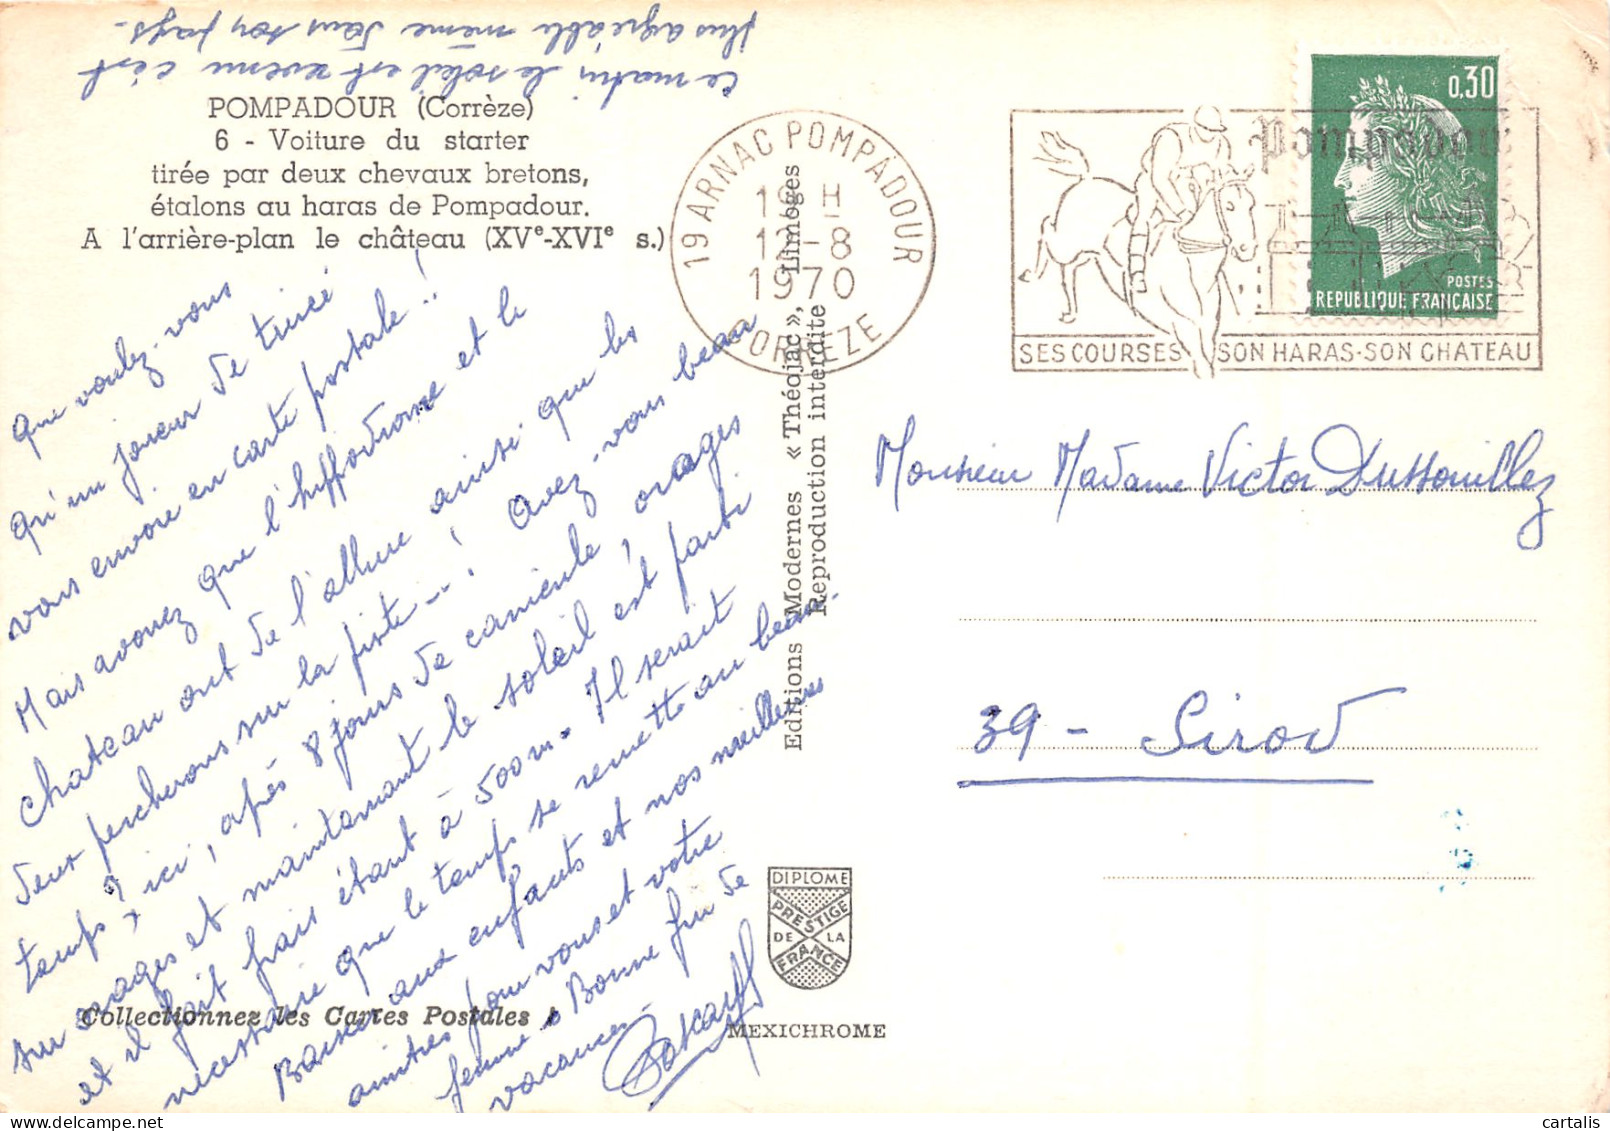 ce matin le soleil est revenu c'est
plus agréable même dans ton pays.
POMPADOUR (Corrèze)
6 - Voiture du starter
tirée par deux chevaux bretons,
étalons au haras de Pompadour.
A l'arrière-plan le château (XVe-XVIe s.)
Que voulez-vous
qu'un joueur de tiercé
vous envoie en carte postale !!
Mais avouez que l'hippodrome et le
chateau ont de l'allure ainsi que les
deux percherons sur la piste --! Avez-vous beau
temps ? ici, après 8 jours de canicule, orages
sur orages et maintenant le soleil est parti
et il fait frais étant à 500 m. Il serait
nécessaire que le temps se remette au beau.
Baiser aux enfants et nos meilleures
amitiés pour vous et votre
femme. Bonne fin de
vacances.
19 ARNAC POMPADOUR
H
1970
CORREZE
Pompadour
SES COURSES SON HARAS-SON CHATEAU
0,30
POSTES
REPUBLIQUE FRANCAISE
Editions Modernes « Théojac », Limoges
Reproduction interdite
Monsieur Madame Victor Dussouillez
39 - Sirod
DIPLOME
PRESTIGE
DE LA
FRANCE
Collectionnez les Cartes Postales !
MEXICHROME
cartalis